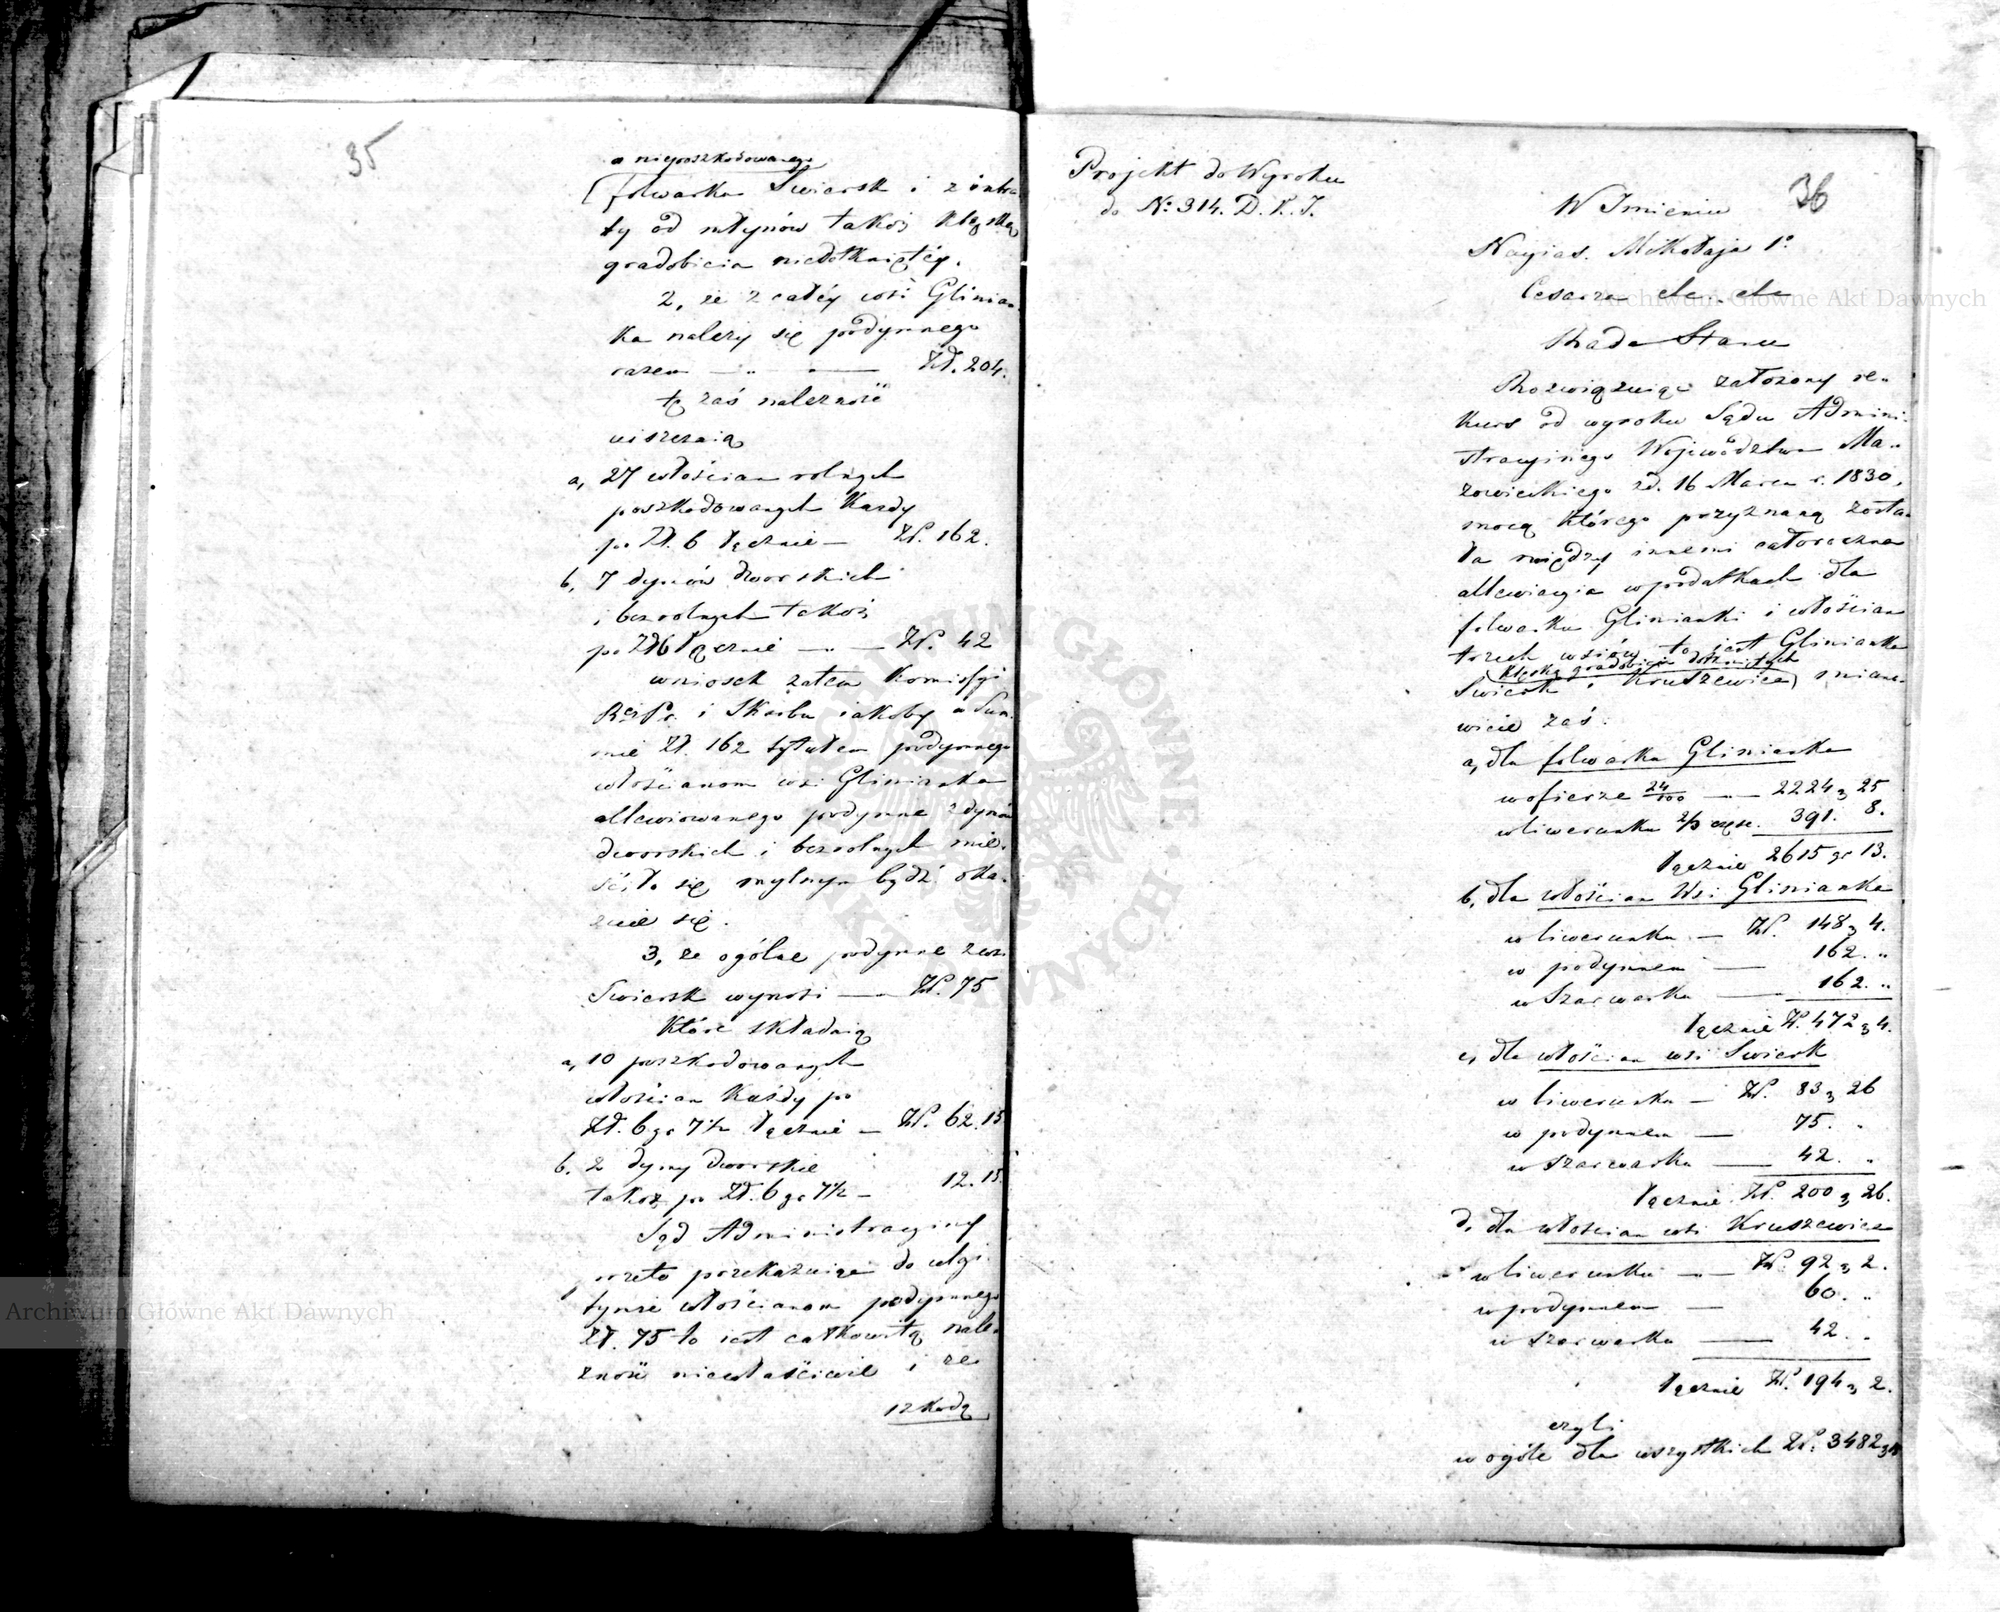 35
a nieposzkodowanego
folwarku Swiersk i z intra
ty od młynów takoż klęską
gradobicia niedotkniętéy.
2, że z całéy wsi Glinian
ka należy się podymnego
razem — „ — Zł. 204.
tę zaś należność
uiszczaią
a, 27 włościan rolnych
poszkodowanych każdy
po Zł. 6 łącznie — Zł. 162.
b, 7 dymów dworskich
i bezrolnych takoż
po Zł 6 łącznie — Zł. 42
wniosek zatem Kommissyi
Rz. Pr. i Skarbu iakoby w Sum
mie Zł. 162 tytułem podymnego
włościanom wsi Glinianka
allewiowanego podymne z dymów
dworskich i bezrolnych mie
ściło się mylnym bydź oka
zuie się.
3, że ogólne podymne z wsi
Swiersk wynosi — Zł. 75
które składaią
a, 10 poszkodowanych
włościan każdy po
Zł. 6 gr 7½ łącznie — Zł. 62.15
b. 2 dymy dworskie
takoż po Zł. 6 gr 7½ — 12.15
Sąd Administracyiny
przeto przekazuiąc do ulgi
tymże włościanom podymnego
Zł. 75 to iest całkowitą nale
żność niewłaściwie i ze
szkodą
Projekt do Wyroku
do No. 314. D. K. J.
36
W Imieniu
Nayias. Mikołaja 1o
Cesarza etc. etc.
Rada Stanu
Rozwiązuiąc założony re-
kurs od wyroku Sądu Admini-
stracyinego Województwa Ma-
zowieckiego z d. 16 Marca r. 1830,
mocą którego przyznaną zosta-
ła między innemi całoroczna
allewiacyia w podatkach dla
folwarku Glinianki i włościan
trzech wsiów to jest Glinianka
klęską gradobicia dotkniętych
Swiersk i Kruszewiec, a miano-
wicie zaś.
a, dla folwarku Glinianka
w ofierze 24/100 — 2224 g 25
w liwerunku 2/3 częśc. 391. 8.
łącznie 2615 gr 13.
b, dla włościan Wsi Glinianka
w liwerunku — Zł. 148 g 4.
w podymnem — 162. „
w Szarwarku — 162. „
łącznie Zł. 472 g 4.
c, dla włościan wsi Swiersk
w liwerunku — Zł. 83 g 26
w podymnem — 75. „
w szarwarku — 42. „
łącznie Zł. 200 g 26.
d, dla włościan wsi Kruszewiec
w liwerunku — Zł. 92 g 2.
w podymnem — 60. „
w szarwarku — 42. „
łącznie Zł. 194 g 2.
czyli
w ogóle dla wszystkich Zł. 3482 g 15
Archiwum Główne Akt Dawnych
Archiwum Główne Akt Dawnych